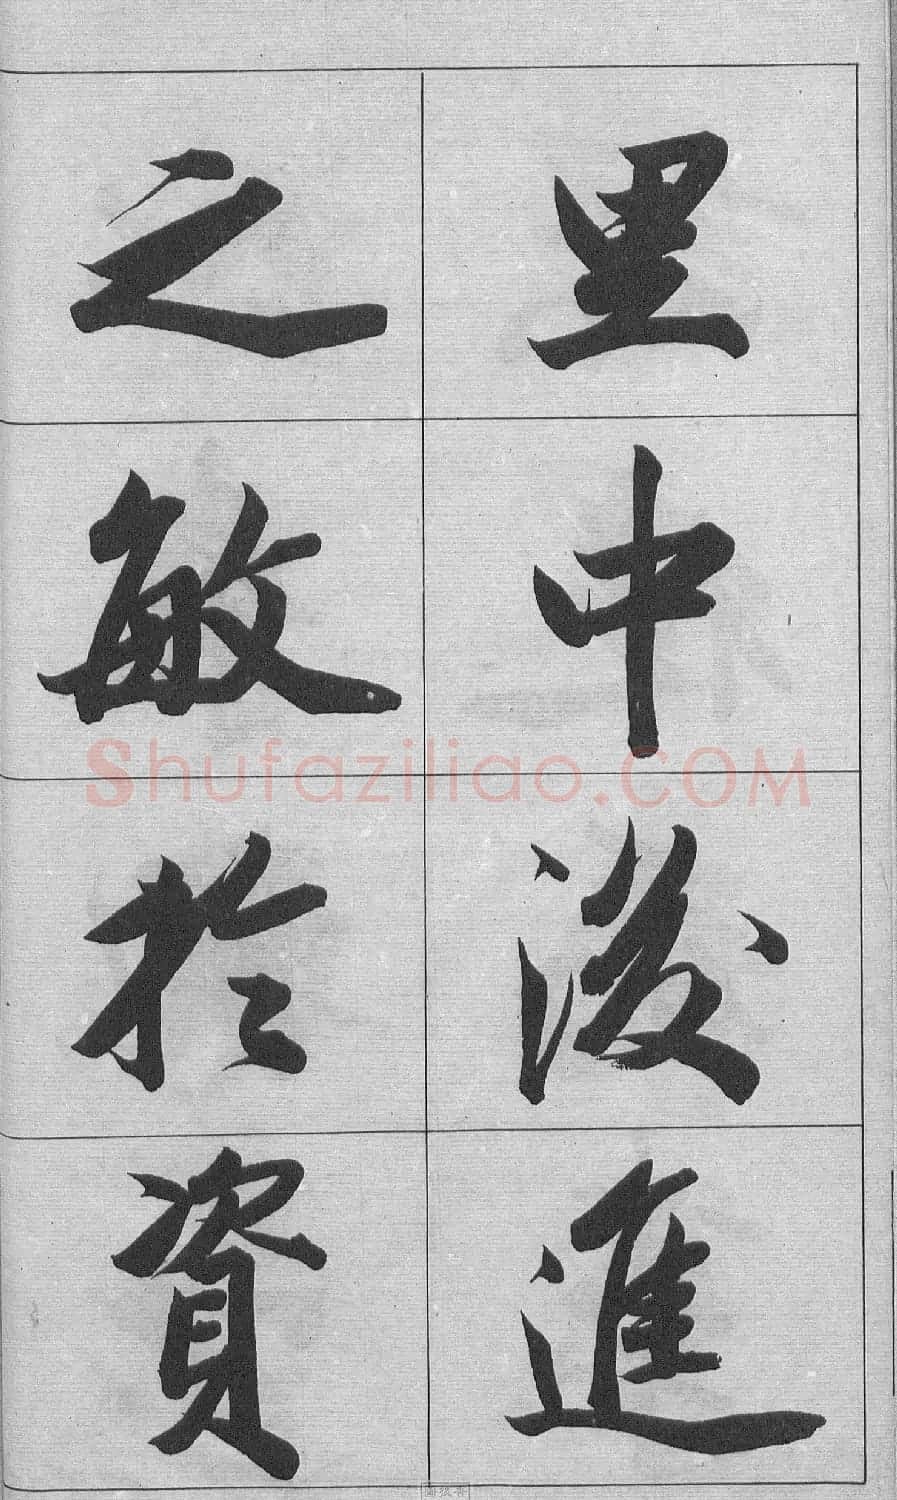 里中後進
之敏於資
Shufaziliao.COM